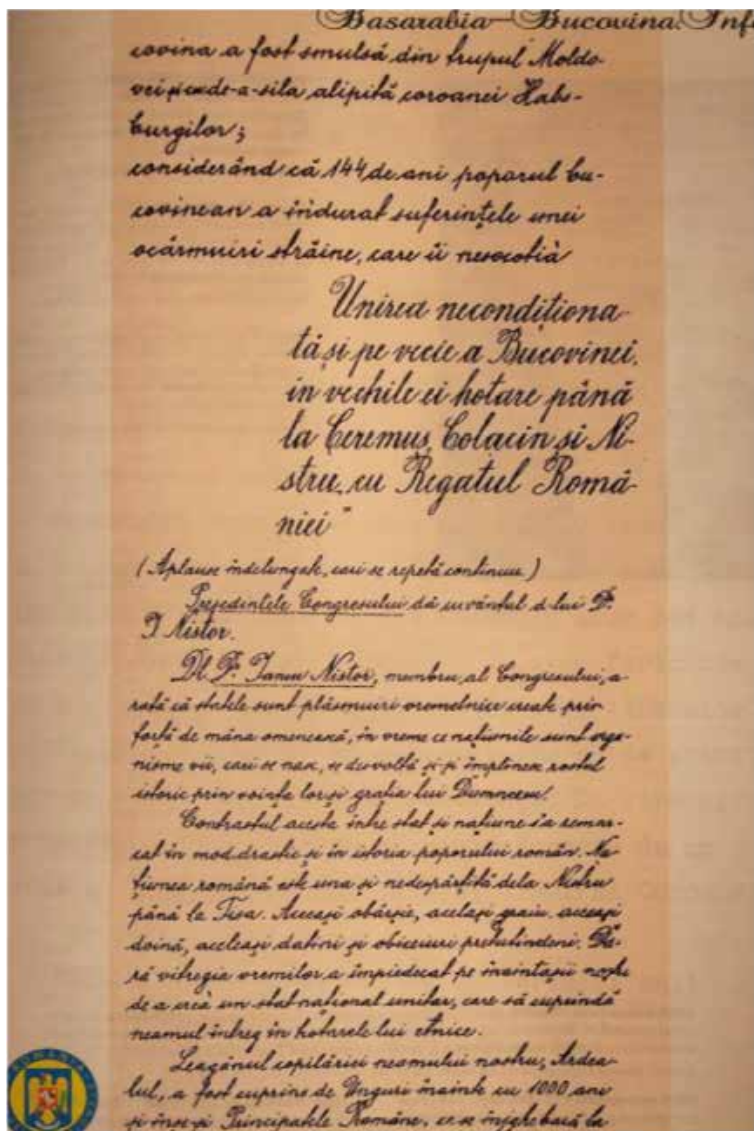 Basarabia-Bucovina.Info
covina a fost smulsă din trupul Moldo-
vei și cu de-a-sila alipită coroanei Habs-
burgilor;
considerând că 144 de ani poporul bu-
covinean a îndurat suferințele unei
ocârmuiri străine, care îi nesocotià
Unirea necondiționa-
tă și pe vecie a Bucovinei,
în vechile ei hotare până
la Ceremuș, Colacin și Ni-
stru, cu Regatul Româ-
niei"
(Aplauze îndelungate, cari se repetă continuu.)
Președintele Congresului dă cuvântul d-lui Dr.
I Nistor.
Dl Dr. Iancu Nistor, membru al Congresului, a-
rată că statele sunt plăsmuiri vremelnice create prin
forță de mâna omenească, în vreme ce națiunile sunt orga-
nisme vii, cari se nasc, se dezvoltă și-și împlinesc rostul
istoric prin voința lor și grația lui Dumnezeu!
Contrastul acesta între stat și națiune s'a remar-
cat în mod drastic și în istoria poporului român. Na-
țiunea română este una și nedespărțită dela Nistru
până la Tisa. Aceeași obârșie, același graiu, aceeași
doină, aceleași datini și obiceiuri pretutindeni. Da-
ră vitregia vremilor a împiedecat pe înaintașii noștri
de a creà un stat național unitar, care să cuprindă
neamul întreg în hotarele lui etnice.
Leagănul copilăriei neamului nostru, Ardea-
lul, a fost cuprins de Unguri înainte cu 1000 ani
și înse-și Principatele Române, ce se înjghebară la